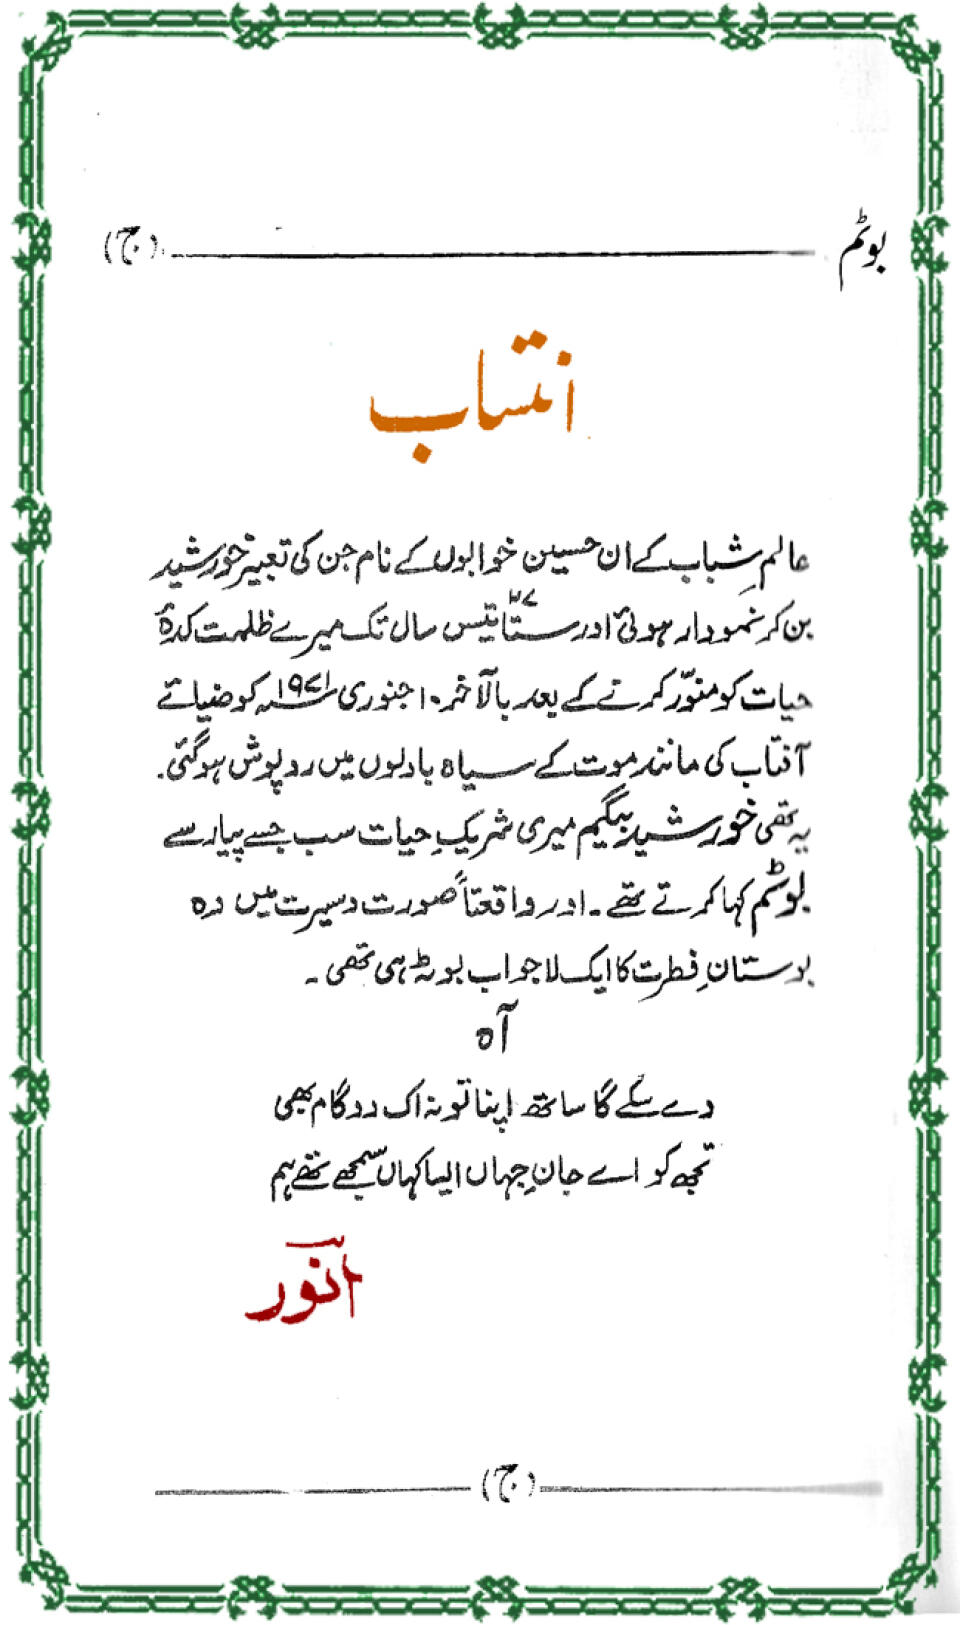 بوٹم (ج)
انتساب
عالمِ شباب کے ان حسین خوابوں کے نام جن کی تعبیر خورشید
بن کر نمودار ہوئی اور ستّائیس ۲۷ سال تک میرے ظلمت کدۂ
حیات کو منوّر کرنے کے بعد بالآخر ۱۰ جنوری ۱۹۷۱ء کو ضیائے
آفتاب کی مانند موت کے سیاہ بادلوں میں روپوش ہوگئی۔
یہ تھی خورشید بیگم میری شریکِ حیات سب جسے پیار سے
بوٹم کہا کرتے تھے۔ اور واقعتاً صورت و سیرت میں وہ
بوستانِ فطرت کا ایک لاجواب بوٹہ ہی تھی۔
آہ
دے سکے گا ساتھ اپنا تو نہ اک دو گام بھی
تجھ کو اے جانِ جہاں ایسا کہاں سمجھے تھے ہم
انور
(ج)